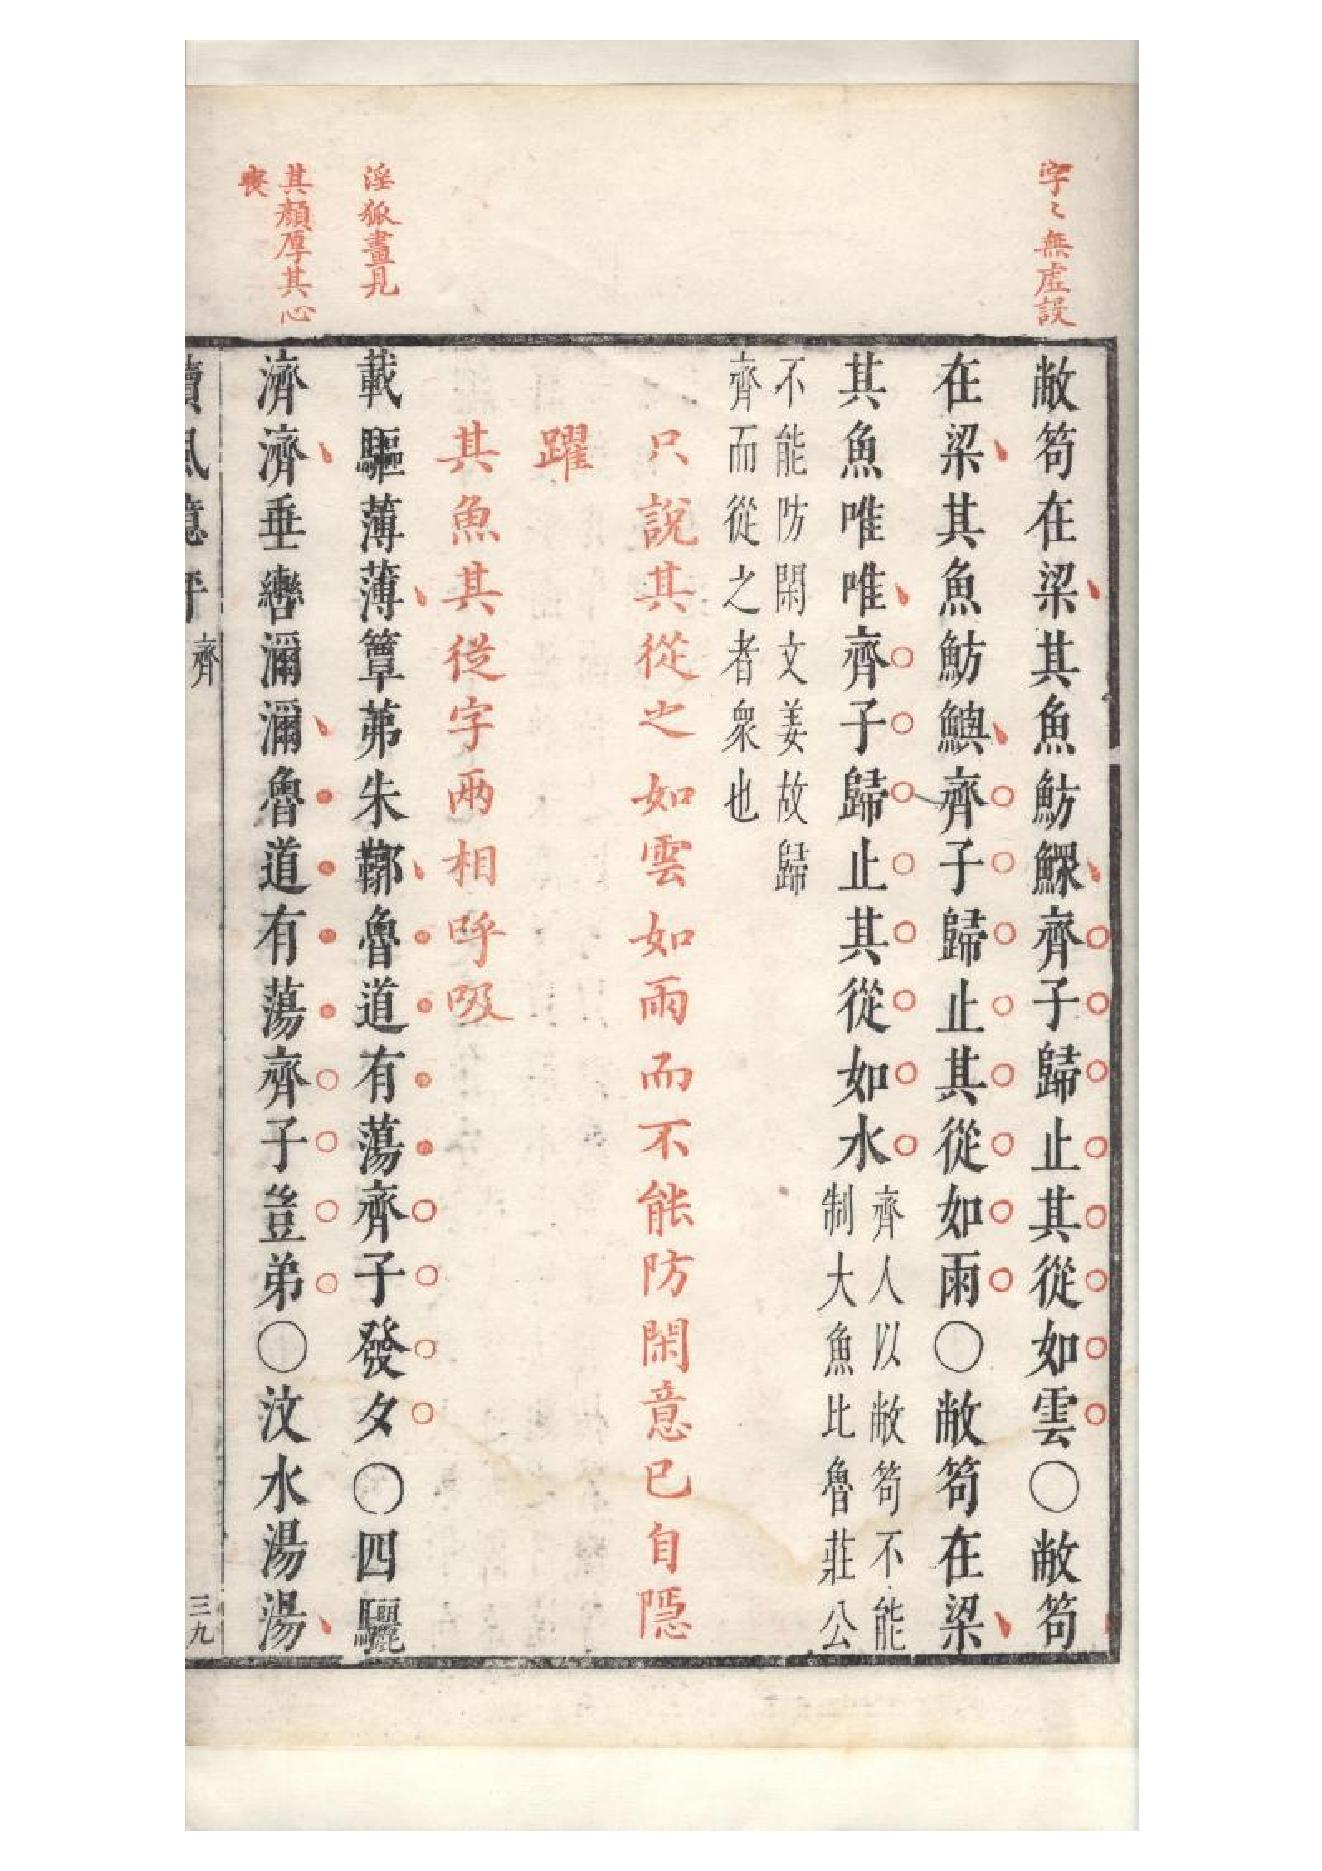 字〻無虛設
敝笱在梁其魚魴鰥齊子歸止其從如雲〇敝笱
在梁其魚魴鱮齊子歸止其從如雨〇敝笱在梁
其魚唯唯齊子歸止其從如水
齊人以敝笱不能
制大魚比魯莊公
不能防閑文姜故歸
齊而從之者衆也
只說其從之如雲如雨而不能防閑意已自隱
躍
其魚其從字兩相呼吸
淫狐晝見
載驅薄薄簟茀朱鞹魯道有蕩齊子發夕〇四驪
其顏厚其心
喪
濟濟垂轡瀰瀰魯道有蕩齊子豈弟〇汶水湯湯
讀風臆評
齊
三九